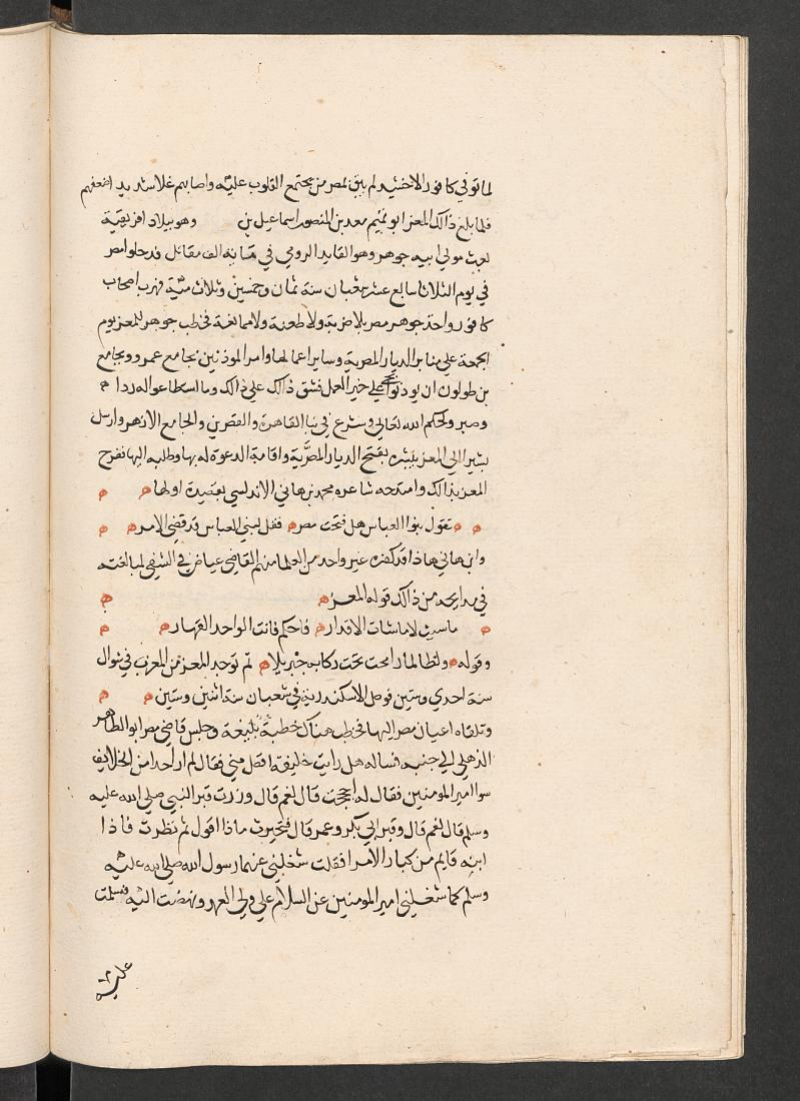 لما توفي كافور الاخشيد لم يبق بمصر من يجتمع القلوب عليه واصابهم غلا شديد اضعفهم
فلما بلغ ذالك المعز ابو تميم معد بن المنصور اسماعيل بن وهو ببلاد افريقية
بعث مولي ابيه جوهر وهو القايد الرومي في مائة الف مقاتل فدخلوا مصر
في يوم الثلاثا سابع عشر شعبان سنة ثمان وخمسين وثلاث مئية فهرب اصحاب
كافور واخذ جوهر مصر بلا ضربة ولا طعنة ولا ممانعة فخطب جوهر للمعز يوم
الجمعة علي منابر الديار المصرية وساير اعمالها وامر الموذنين بجامع عمرو وبجامع
بن طولون ان يوذنوا بحي علي خير العمل فشق ذالك علي ذالك وما اسطاعوا له ردا
وصبر ولحكم الله تعالي وشرع في بنا القاهرة والقصرين والجامع الازهر وارسل
بشيرا الي المعز يبشره بفتح الديار المصرية واقامة الدعوة له بها وطلبه اليها ففرح
المعز بذالك وامتدحه شاعره محمد بن هاني الاندلسي بقصيدة اولها
تقول بنوا العباس هل فتحت مصر فقل لبني العباس قد قضي الامر
وابن هاني هاذا قد كفره غير واحد من العلما منهم القاضي عياض في الشفي لمبالغته
في مدايحه من ذالك قوله المعز
ماسيت لاماشات الاقدار فاحكم فانت الواحد القهار
وقوله ولطالما زاحمت تحت ركابه جبريلا ثم توجه المعز من المغرب في شوال
سنة احدي وستين فوصل الاسكندرية في شعبان سنة اثنين وستين
وتلقاه اعيان مصر اليها فخطب هناك خطبة بليغة وجلس قاضي مصر ابو الطاهر
الذهلي الي جنبه فساله هل رايت خليفة افضل مني فقال لم ار احدا من الخلايف
سوا امير المومنين فقال له احججت قال نعم قال وزرت قبر النبي صلي الله عليه
وسلم قال نعم قال وقبر ابي بكر وعمر قال فتحيرت ماذا اقول ثم نظرت فاذا
ابنه قايم من كبار الامرا فقلت شغلني عنهما رسول الله صلي الله عليه
وسلم كما شغلني امير المومنين عن السلام علي ولي العهد ونهضت اليه فسلمت
عليه